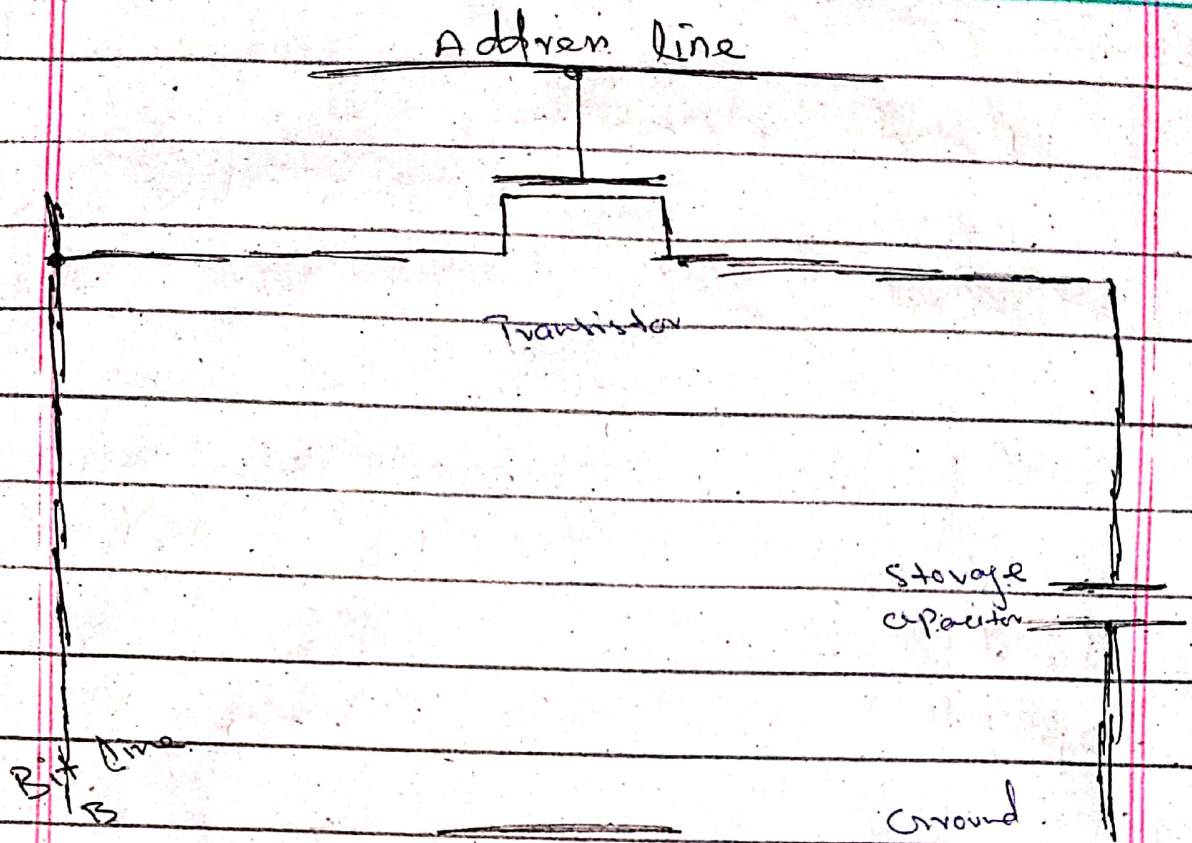 Address line
Transistor
Storage
capacitor
Bit line
B
Ground